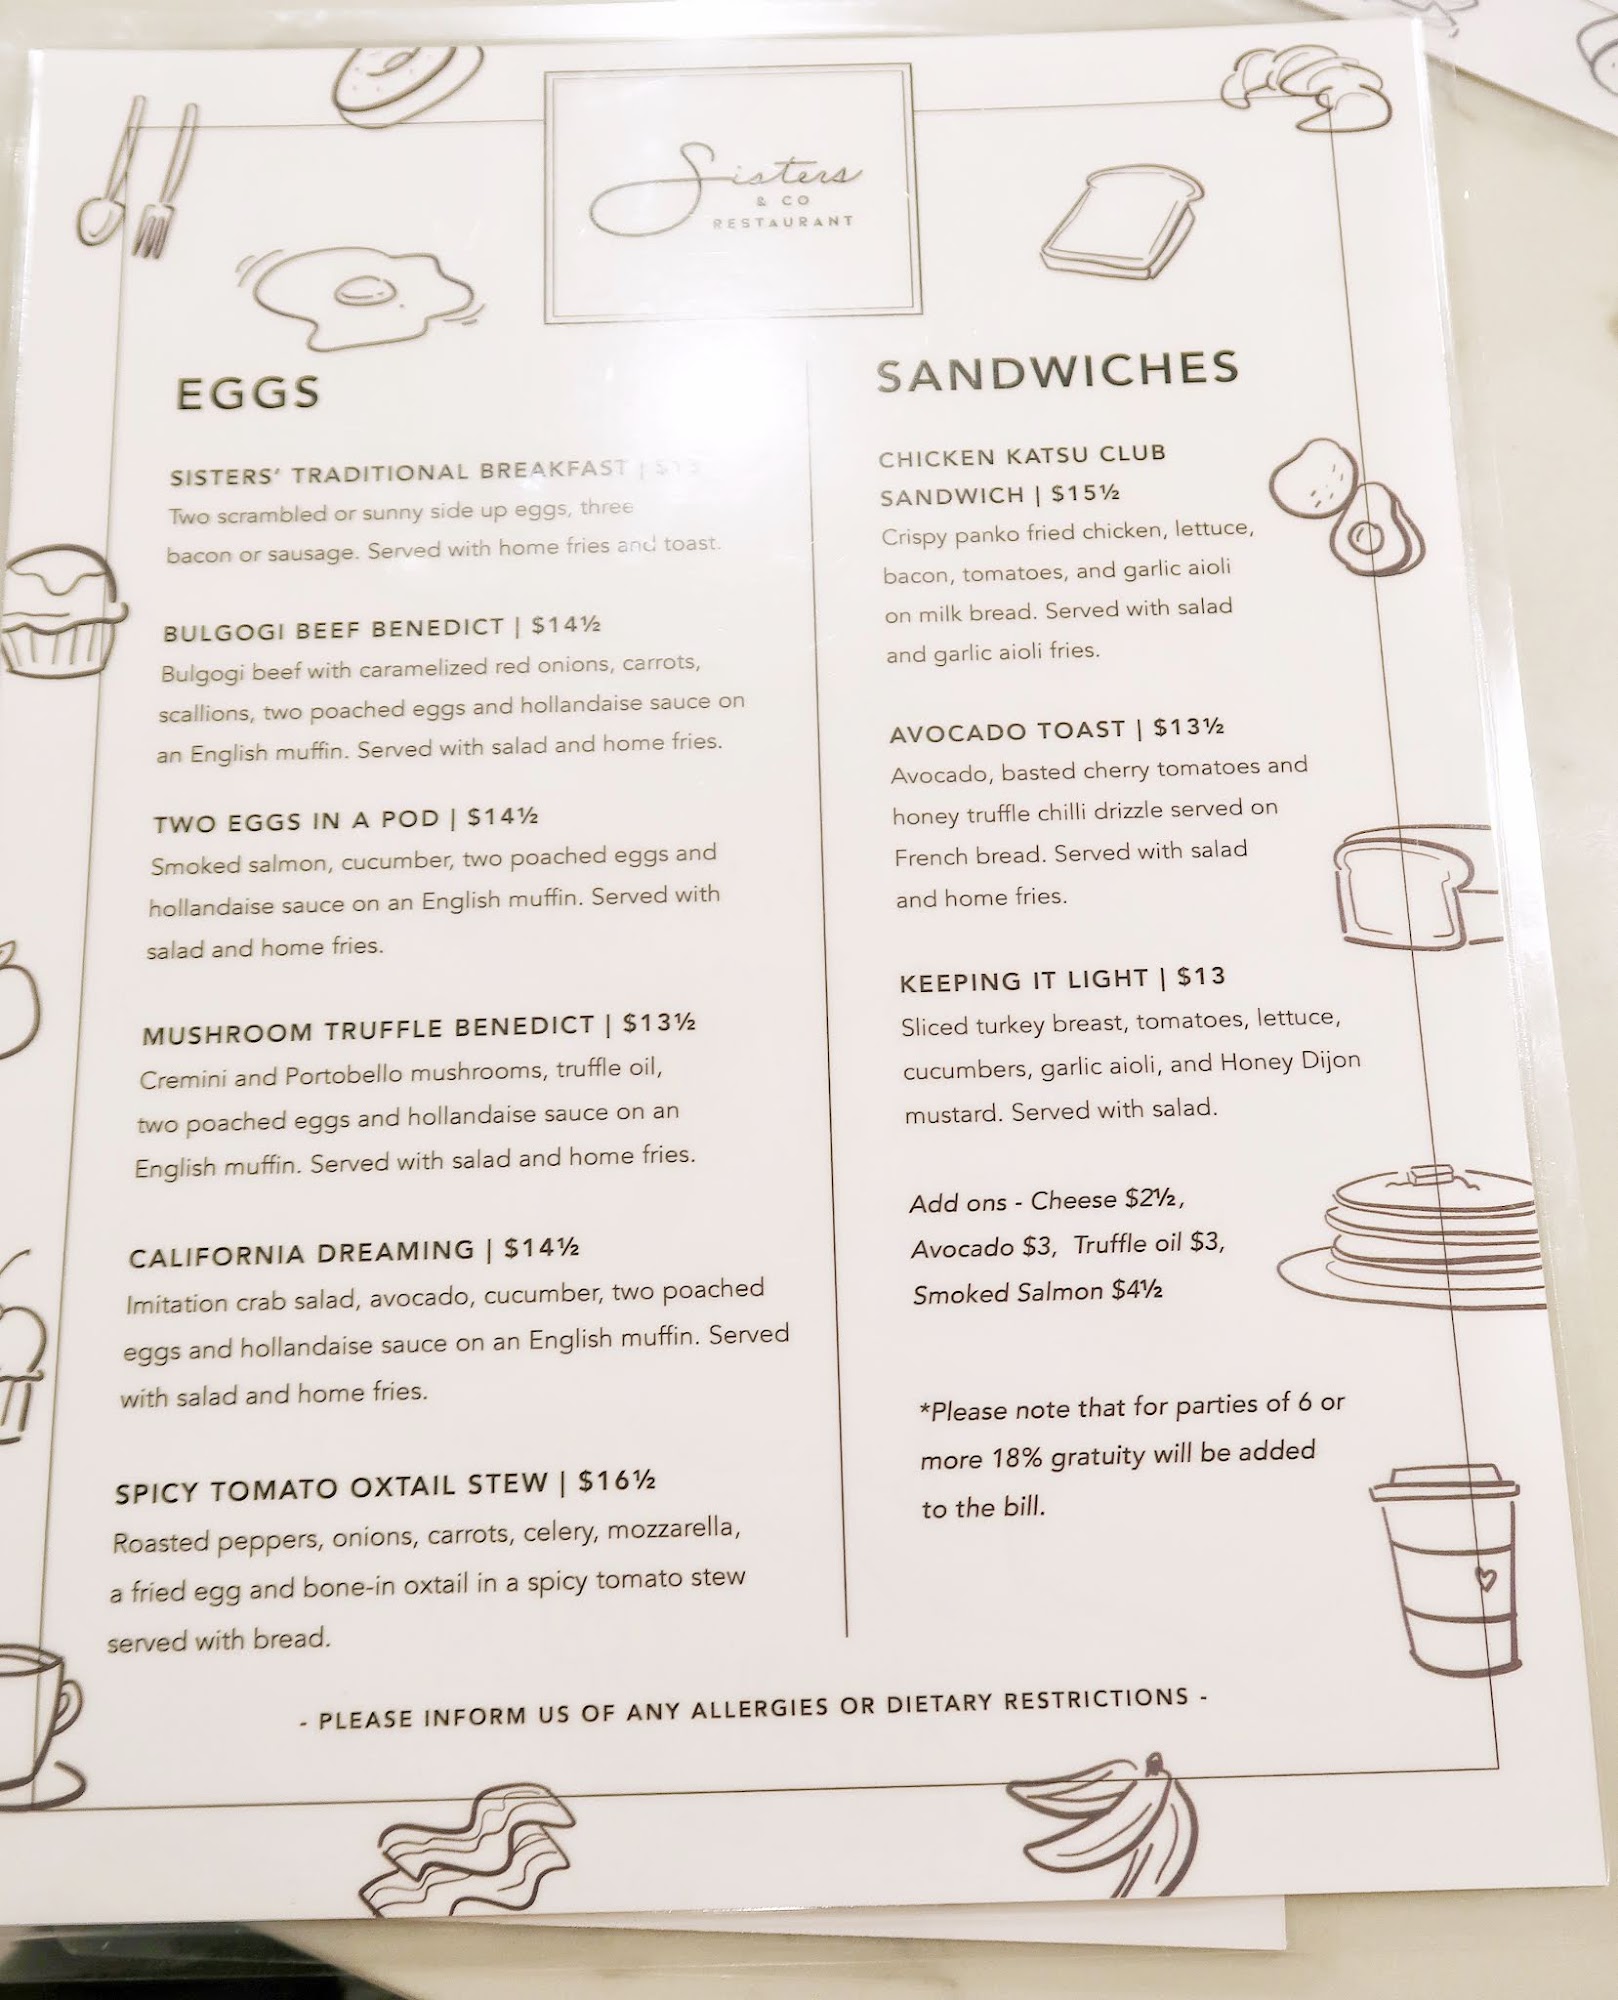 Sisters
& CO
RESTAURANT
EGGS
SISTERS' TRADITIONAL BREAKFAST | $13
Two scrambled or sunny side up eggs, three
bacon or sausage. Served with home fries and toast.
BULGOGI BEEF BENEDICT | $14½
Bulgogi beef with caramelized red onions, carrots,
scallions, two poached eggs and hollandaise sauce on
an English muffin. Served with salad and home fries.
TWO EGGS IN A POD | $14½
Smoked salmon, cucumber, two poached eggs and
hollandaise sauce on an English muffin. Served with
salad and home fries.
MUSHROOM TRUFFLE BENEDICT | $13½
Cremini and Portobello mushrooms, truffle oil,
two poached eggs and hollandaise sauce on an
English muffin. Served with salad and home fries.
CALIFORNIA DREAMING | $14½
Imitation crab salad, avocado, cucumber, two poached
eggs and hollandaise sauce on an English muffin. Served
with salad and home fries.
SPICY TOMATO OXTAIL STEW | $16½
Roasted peppers, onions, carrots, celery, mozzarella,
a fried egg and bone-in oxtail in a spicy tomato stew
served with bread.
SANDWICHES
CHICKEN KATSU CLUB
SANDWICH | $15½
Crispy panko fried chicken, lettuce,
bacon, tomatoes, and garlic aioli
on milk bread. Served with salad
and garlic aioli fries.
AVOCADO TOAST | $13½
Avocado, basted cherry tomatoes and
honey truffle chilli drizzle served on
French bread. Served with salad
and home fries.
KEEPING IT LIGHT | $13
Sliced turkey breast, tomatoes, lettuce,
cucumbers, garlic aioli, and Honey Dijon
mustard. Served with salad.
Add ons - Cheese $2½,
Avocado $3, Truffle oil $3,
Smoked Salmon $4½
*Please note that for parties of 6 or
more 18% gratuity will be added
to the bill.
- PLEASE INFORM US OF ANY ALLERGIES OR DIETARY RESTRICTIONS -